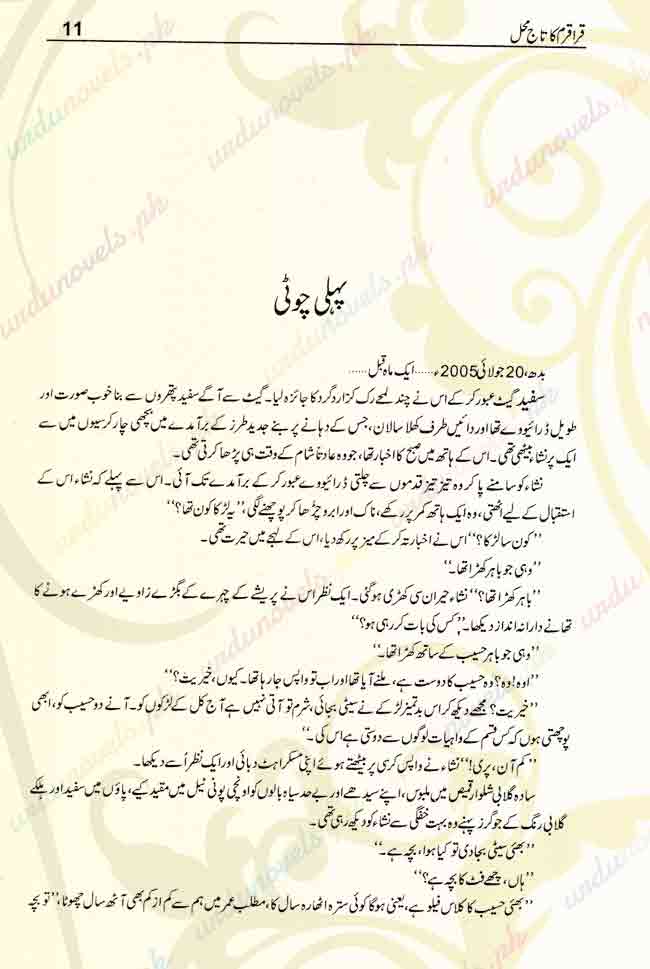 قراقرم کا تاج محل 11
پہلی چوٹی
بدھ، 20 جولائی 2005ء...... ایک ماہ قبل......
سفید گیٹ عبور کر کے اس نے چند لمحے رک کر اردگرد کا جائزہ لیا۔ گیٹ سے آگے سفید پتھروں سے بنا خوب صورت اور
طویل ڈرائیو وے تھا اور دائیں طرف کھلا سا لان، جس کے دہانے پر بنے جدید طرز کے برآمدے میں بچھی چار کرسیوں میں سے
ایک پر نشاء بیٹھی تھی۔ اس کے ہاتھ میں صبح کا اخبار تھا، جو وہ عادتاً شام کے وقت ہی پڑھا کرتی تھی۔
نشاء کو سامنے پا کر وہ تیز تیز قدموں سے چلتی ڈرائیو وے عبور کر کے برآمدے تک آئی۔ اس سے پہلے کہ نشاء اس کے
استقبال کے لیے اٹھتی، وہ ایک ہاتھ کمر پر رکھے، ناک اور ابرو چڑھا کر پوچھنے لگی، ’’یہ لڑکا کون تھا؟‘‘
’’کون سا لڑکا؟‘‘ اس نے اخبار تہ کر کے میز پر رکھ دیا، اس کے لہجے میں حیرت تھی۔
’’وہی جو باہر کھڑا تھا۔‘‘
’’باہر کھڑا تھا؟‘‘ نشاء حیران سی کھڑی ہو گئی۔ ایک نظر اس نے پریشے کے چہرے کے بگڑے زاویے اور کھڑے ہونے کا
تھانے دارانہ انداز دیکھا۔ ’’کس کی بات کر رہی ہو؟‘‘
’’وہی جو باہر حسیب کے ساتھ کھڑا تھا۔‘‘
’’اوہ! وہ؟ وہ حسیب کا دوست ہے، ملنے آیا تھا اور اب تو واپس جا رہا تھا۔ کیوں، خیریت؟‘‘
’’خیریت؟ مجھے دیکھ کر اس بدتمیز لڑکے نے سیٹی بجائی، شرم تو آتی نہیں ہے آج کل کے لڑکوں کو۔ آنے دو حسیب کو، ابھی
پوچھتی ہوں کہ کس قسم کے واہیات لوگوں سے دوستی ہے اس کی۔‘‘
’’کم آن، پری!‘‘ نشاء نے واپس کرسی پر بیٹھتے ہوئے اپنی مسکراہٹ دبائی اور ایک نظر اُسے دیکھا۔
سادہ گلابی شلوار قمیص میں ملبوس، اپنے سیدھے اور بے حد سیاہ بالوں کو اونچی پونی ٹیل میں مقید کیے، پاؤں میں سفید اور ہلکے
گلابی رنگ کے جوگرز پہنے وہ بہت خفگی سے نشاء کو دیکھ رہی تھی۔
’’بھئی سیٹی بجا دی تو کیا ہوا، بچہ ہے۔‘‘
’’ہاں، چھے فٹ کا بچہ ہے؟‘‘
’’بھئی حسیب کا کلاس فیلو ہے، یعنی ہو گا کوئی سترہ اٹھارہ سال کا، مطلب عمر میں ہم سے کم از کم بھی آٹھ سال چھوٹا، ’’تو بچہ
urdunovels.pk
urdunovels.pk
urdunovels.pk
urdunovels.pk
urdunovels.pk
urdunovels.pk
urdunovels.pk
urdunovels.pk
urdunovels.pk
urdunovels.pk
urdunovels.pk
urdunovels.pk